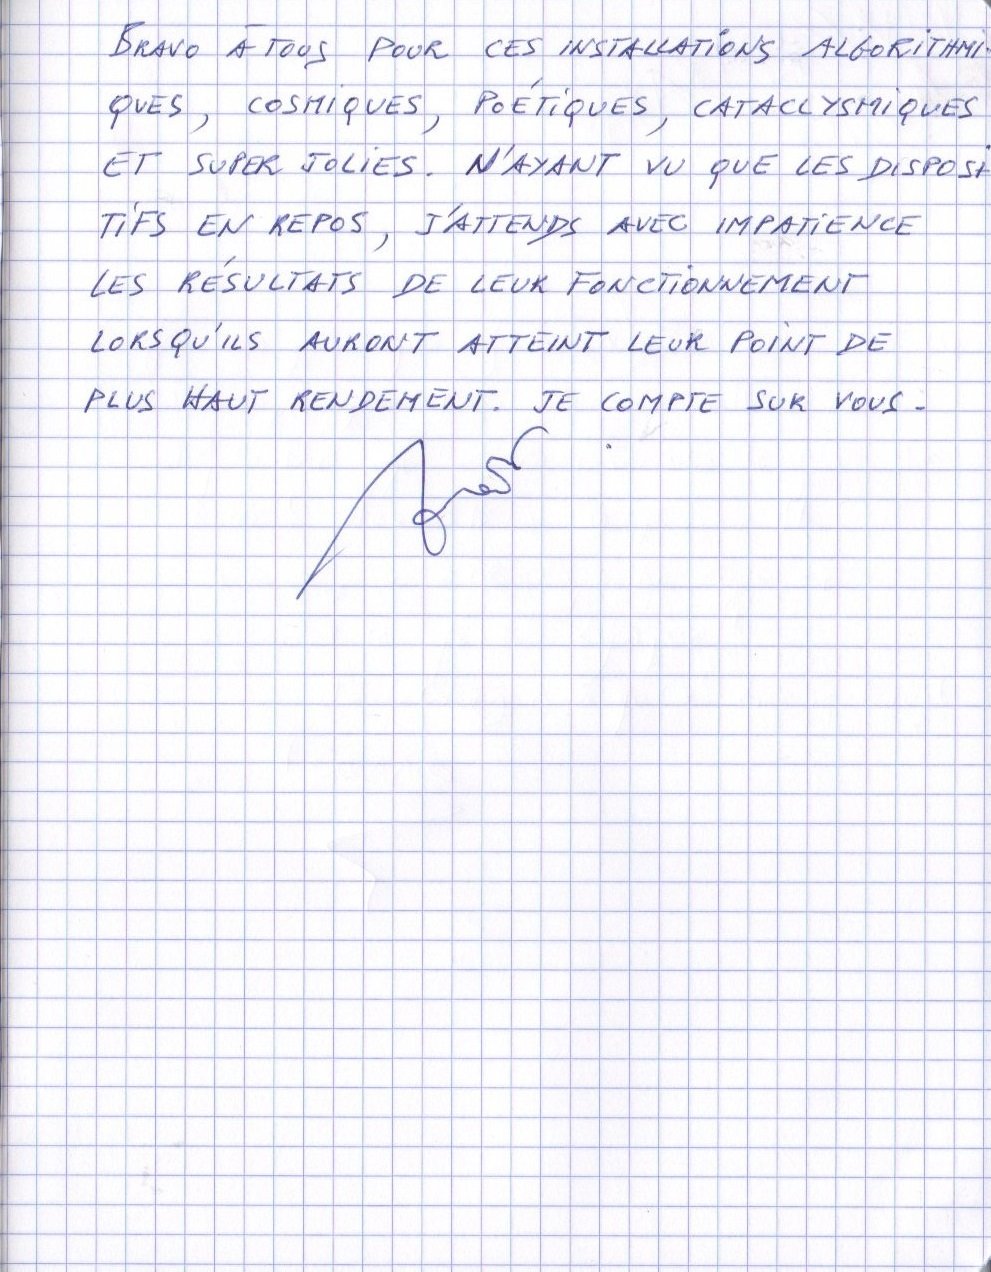 BRAVO À TOUS POUR CES INSTALLATIONS ALGORITHMI-
QUES, COSMIQUES, POÉTIQUES, CATACLYSMIQUES
ET SUPER JOLIES. N'AYANT VU QUE LES DISPOSI-
TIFS EN REPOS, J'ATTENDS AVEC IMPATIENCE
LES RÉSULTATS DE LEUR FONCTIONNEMENT
LORSQU'ILS AURONT ATTEINT LEUR POINT DE
PLUS HAUT RENDEMENT. JE COMPTE SUR VOUS.